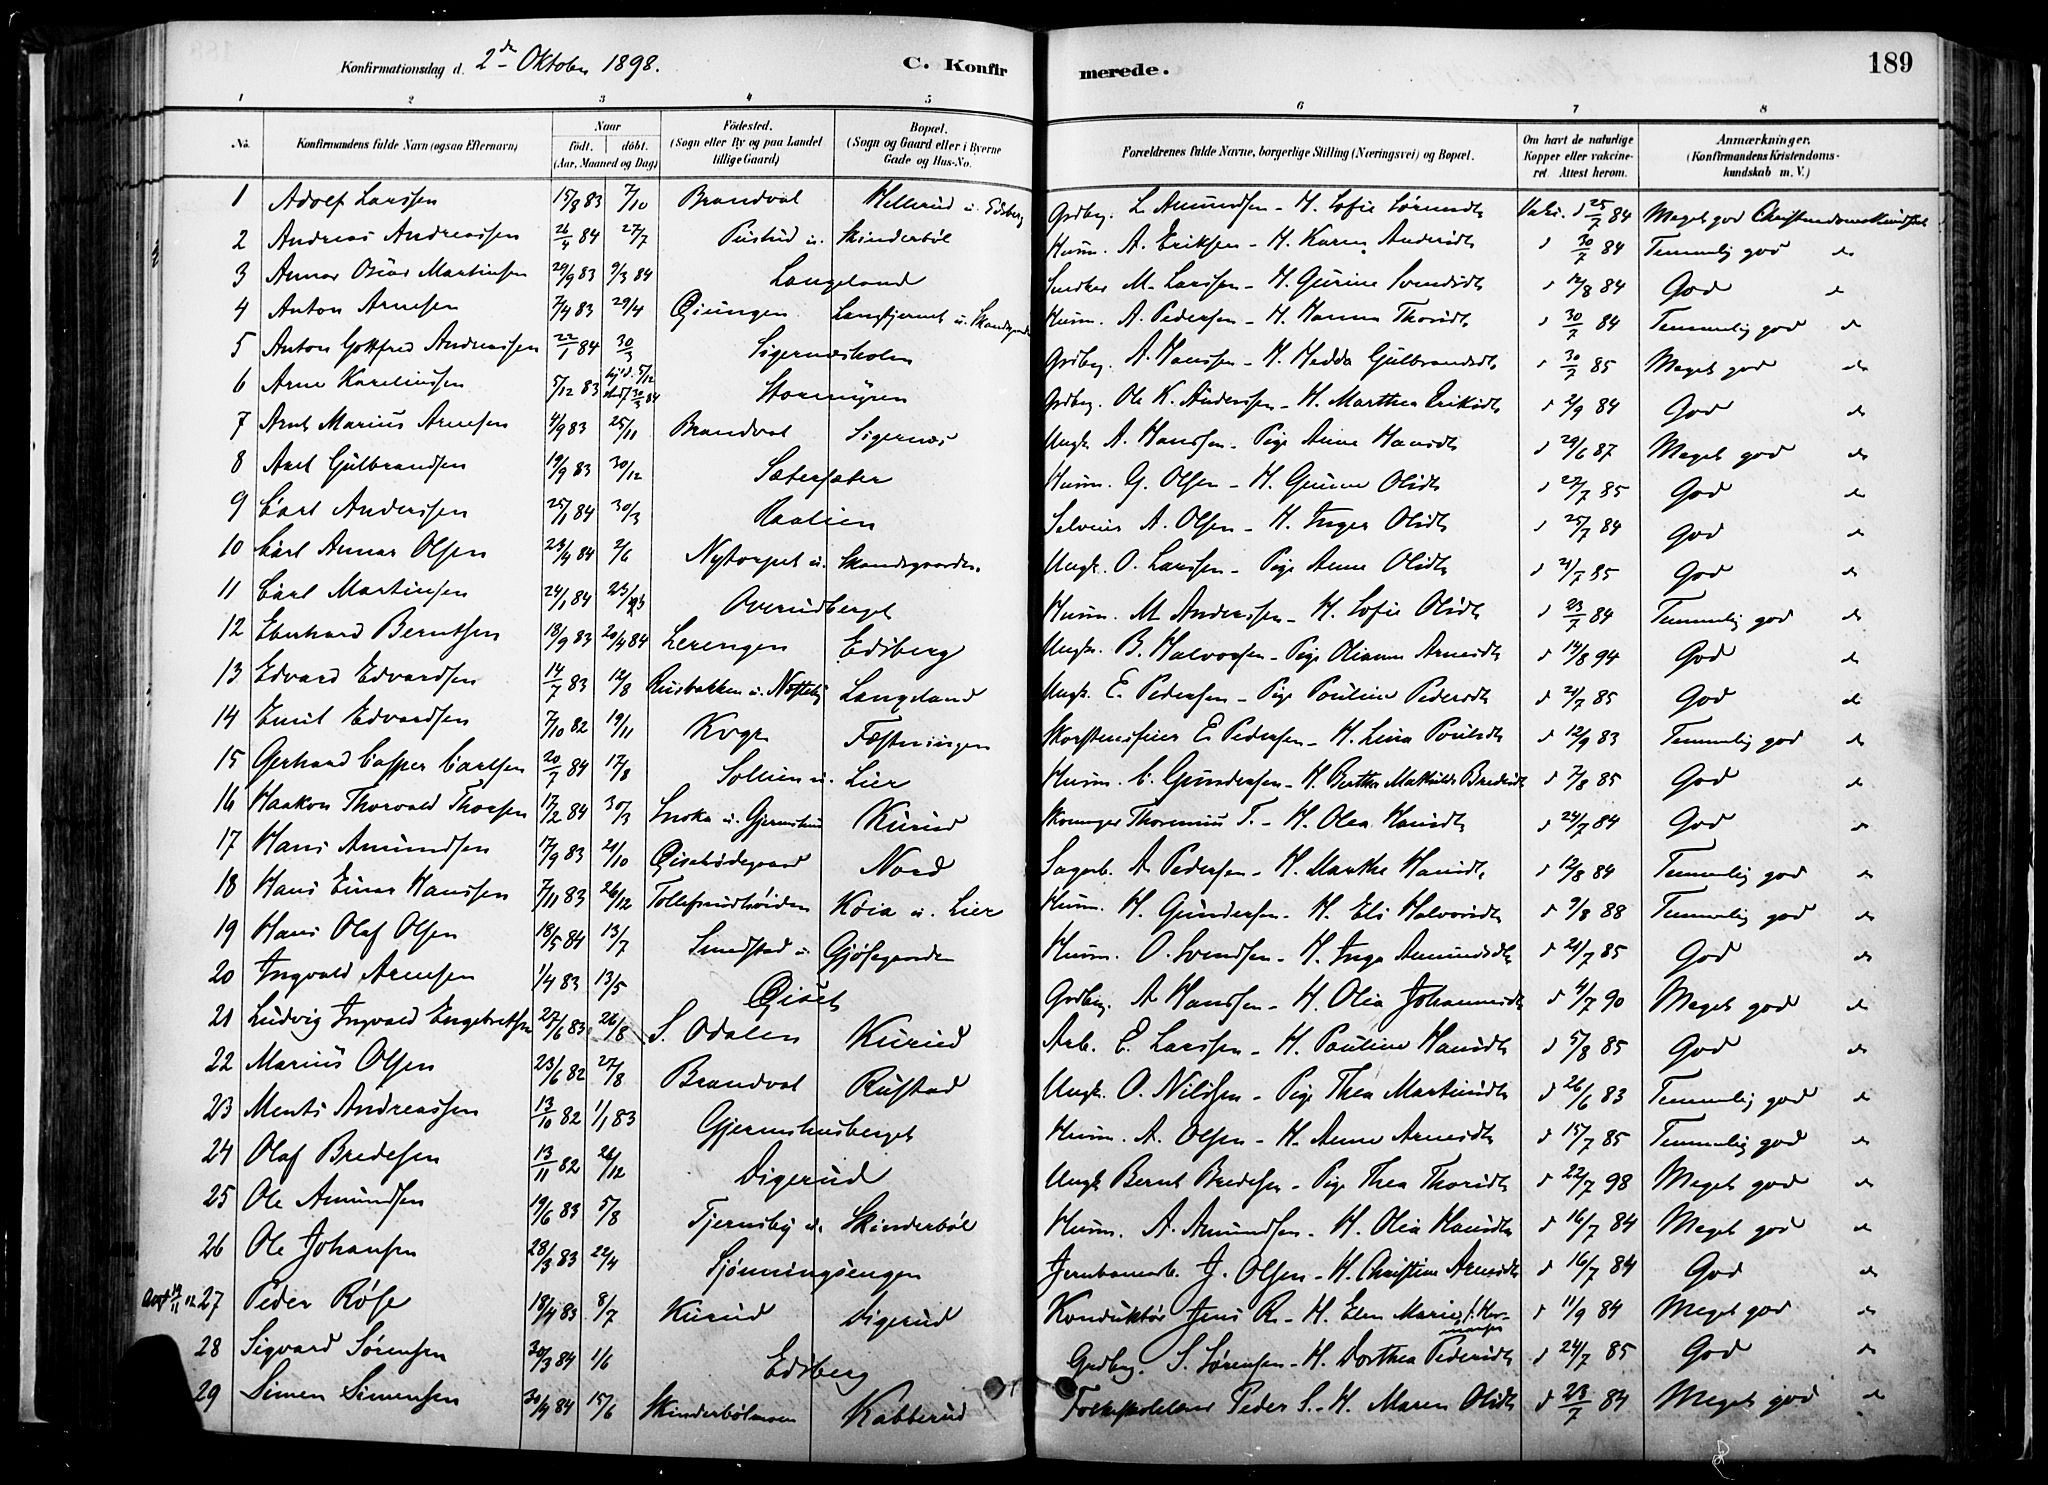 Konfirmationsdag d. 2den Oktober 1898. C. Konfirmerede. 189
1 2 3 4 5 6 7 8
No. Konfirmandens fulde Navn (ogsaa Efternavn) Naar født. døbt. (Aar, Maaned og Dag) Fødested. (Sogn eller By og paa Landet tillige Gaard) Bopæl. (Sogn og Gaard eller i Byerne Gade og Hus-No. Forældrenes fulde Navne, borgerlige Stilling (Næringsvei) og Bopæl. Om havt de naturlige Kopper eller vakcineret. Attest herom. Anmærkninger. (Konfirmandens Kristendomskundskab m. V.)
1 Adolf Larssen 15/8 83 7/10 Brandval Hellerud u. Edsberg Grdbrg. L. Amundsen - H. Sofie Sørensdt. Vaks. d 25/7 84 Meget god Christendomskundskab
2 Andreas Andreassen 26/4 84 27/7 u. Skinderbøl Husm. A. Eriksen - H. Karen Andersdt. d 30/7 84 Temmelig god do
3 Annar Oskar Martinsen 29/9 83 9/3 84 Langeland Snedker M. Larssen - H. Gurine Svendsdt. d 12/8 84 God do
4 Anton Arnesen 7/4 83 29/4 Langtjernet u. Husm. A. Pedersen - H. Hanna Thorsdt. d 30/7 84 Temmelig god do
5 Anton Gottfred Andreassen 22/1 84 30/3 Sigernæsholm Grdbrg. A. Hanssen - H. Hedda Gulbrandsdt. d 30/7 85 Meget god do
6 Arne Karelinssen 5/12 83 hjd. 5/12 30/3 84 Stormyren Grdbrg. Ole K. Anderssen - H. Marthea Eriksdt. d 2/9 84 God do
7 Arnt Marius Arnesen 4/9 83 25/11 Brandval Sigernæs Ungk. A. Hanssen - Pige Anne Hansdt. d 29/6 87 Meget god do
8 Axel Gulbrandsen 19/9 83 30/12 Sætersæter Husm. G. Olsen - H. Gunne Olsdt. d 27/7 85 God do
9 Carl Anderssen 25/1 84 30/3 Raalien Selveier A. Olsen - H. Inger Olsdt. d 25/7 84 God do
10 Carl Annar Olsen 23/4 84 2/6 Nytorpet u. Skandsgaarden. Ungk. O. Larssen - Pige Anne Olsdt. d 21/7 85 God do
11 Carl Martinsen 24/1 84 23/3 Overudberget Husm. M. Anderssen - H. Sofie Olsdt. d 23/7 84 Temmelig god do
12 Eberhard Berntsen 18/9 83 20/4 84 Lerengen Edsberg Ungk. B. Halvorsen - Pige Olianna Arnesdt. d 14/8 94 God do
13 Edvard Edvardsen 14/7 83 12/8 Rusbakken u. Nøtteby Langeland Ungk. E. Pedersen - Pige Pouline Pedersdt. d 21/7 85 God do
14 Emil Edvardsen 7/10 82 19/11 Kvgr. Fæstningen Skorstensfeier E. Pedersen - H. Lina Poulsdt. d 12/9 83 Temmelig god do
15 Gerhard Casper Carlsen 20/7 84 17/8 Sollien u. Lier Husm. C. Gundersen - H. Berthe Mathilde Bredesdt. d 7/8 85 God do
16 Haakon Thorvald Thorsen 17/2 84 30/3 u. Gjermshus Kurud Thorenius T. - H. Olea Hansdt. d 24/7 84 God do
17 Hans Amundsen 17/9 83 21/10 Øisetødegaard Nord Sagarb. A. Pedersen - H. Marthe Hansdt. d 12/8 84 Temmelig god do
18 Hans Einar Hanssen 7/11 83 26/12 Tollefsrudhøiden Køia u. Lier Husm. H. Gundersen - H. Eli Halvorsdt. d 9/8 88 Temmelig god do
19 Hans Olaf Olsen 18/5 84 13/7 Sundstad u. Gjøsegaarden Husm. O. Svendsen - H. Inga Amundsdt. d 21/7 85 God do
20 Ingvald Arnesen 1/4 83 13/5 Øiset Grdbrg. A. Hanssen - H. Olia Johannesdt. d 4/7 90 Meget god do
21 Ludvig Ingvald Engebretsen 27/6 83 26/8 S. Odalen Kurud Arb. E. Larssen - H. Pauline Hansdt. d 5/8 85 God do
22 Marius Olsen 23/6 82 27/8 Brandval Rustad Ungk. O. Nilssen - Pige Thea Martinsdt. d 26/6 83 Temmelig god do
23 Ments Andreassen 13/10 82 1/1 83 Gjermshusberget Husm. A. Olsen - H. Anne Arnesdt. d 15/7 85 Temmelig god do
24 Olaf Bredesen 13/11 82 26/12 Digerud Ungk. Bernt Bredesen - Pige Thea Thorsdt. d 22/7 98 Meget god do
25 Ole Amundsen 19/6 83 5/8 Tjernsby u. Skinderbøl Husm. A. Amundsen - H. Olia Hansdt. d 16/7 84 Meget god do
26 Ole Johansen 28/3 83 22/4 Sjønningsengen Jernbanearb. J. Olsen - H. Christine Arnesdt. d 16/7 84 God do
27 Peder Røse 18/4 83 8/7 Kurud Digerud Konduktør Jens R. - H. Elen Marie f. Hermansen d 11/9 84 Meget god do
28 Sigvard Sørensen 30/3 84 1/6 Edsberg Grdbrg. S. Sørensen - H. Dorthea Pedersdt. d 24/7 85 God do
29 Simen Simensen 30/4 84 15/6 Skinderbølmoen Kabberud Peder S. - H. Maren Olsdt. d 23/7 84 Meget god do